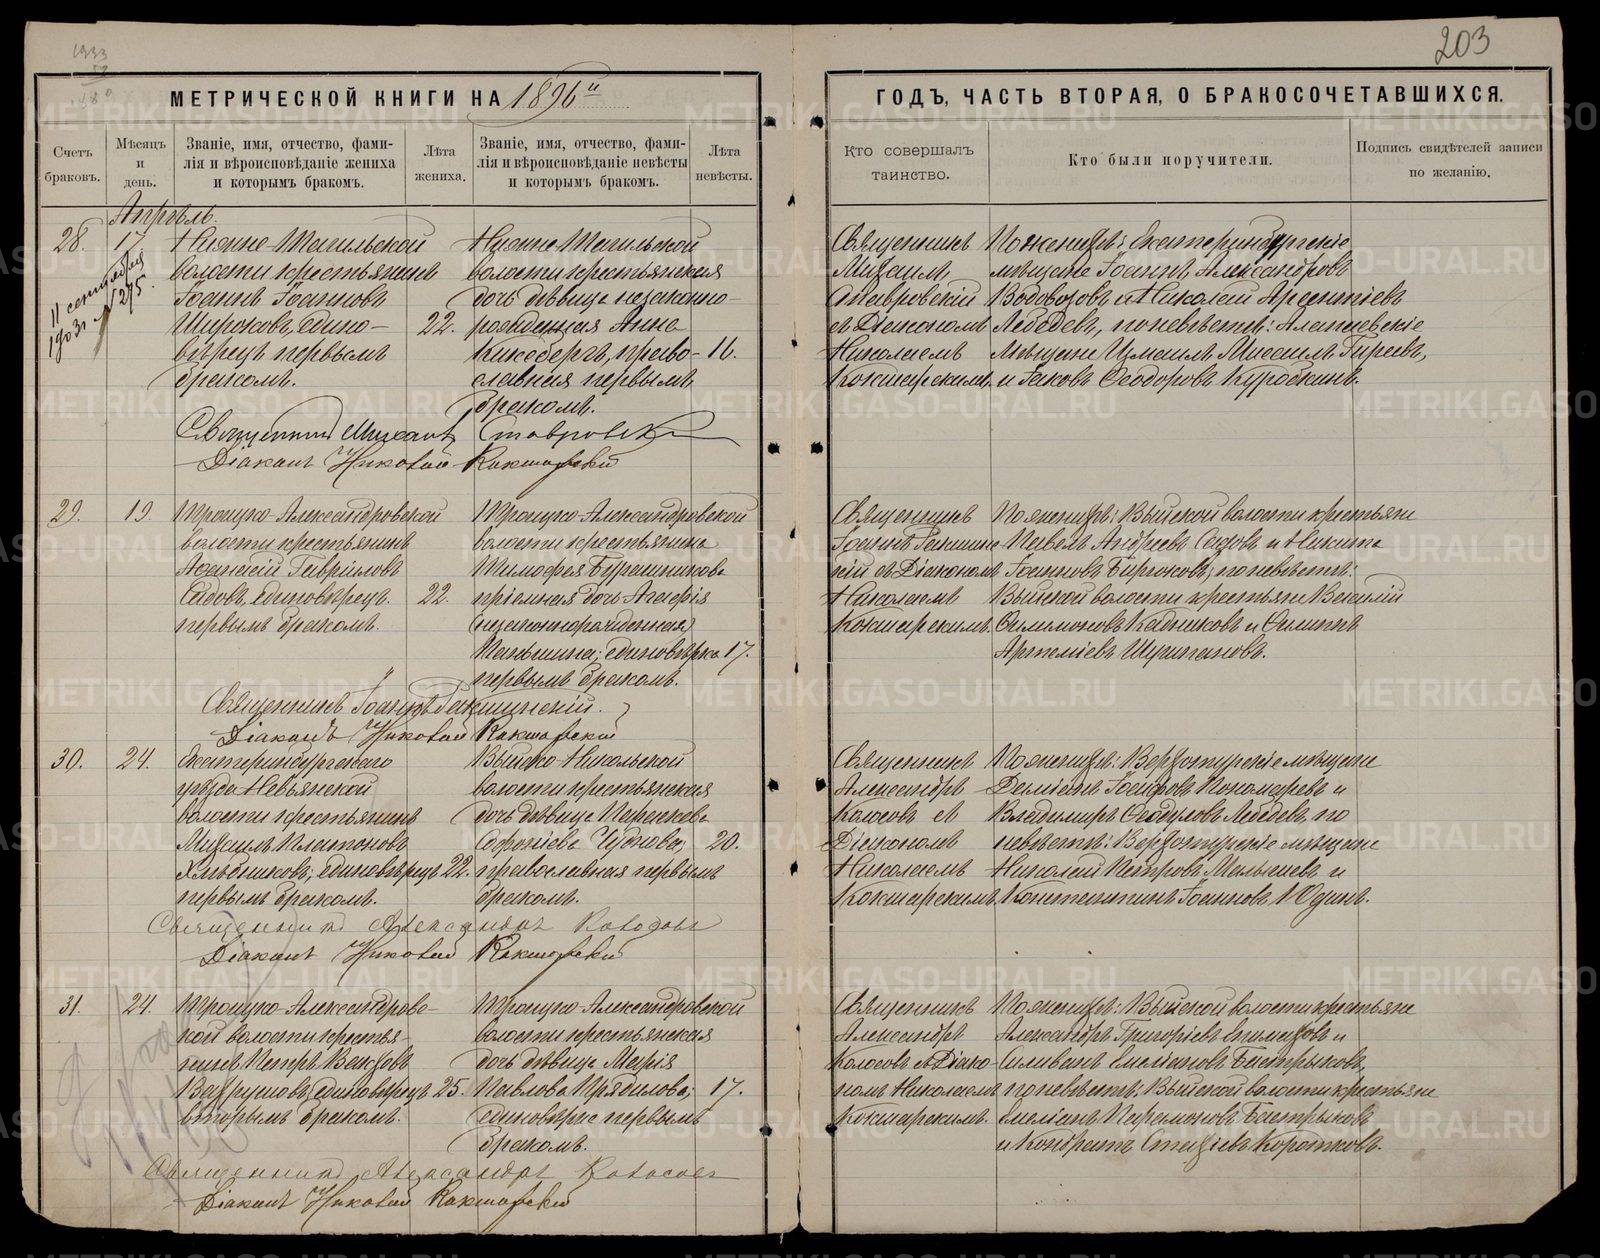 203
МЕТРИЧЕСКОЙ КНИГИ НА 1896й
ГОДЪ, ЧАСТЬ ВТОРАЯ, О БРАКОСОЧЕТАВШИХСЯ.
Счетъ
браковъ.
Мѣсяцъ
и
день.
Званіе, имя, отчество, фами-
лія и вѣроисповѣданіе жениха
и которымъ бракомъ.
Лѣта
жениха.
Званіе, имя, отчество, фами-
лія и вѣроисповѣданіе невѣсты
и которымъ бракомъ.
Лѣта
невѣсты.
Кто совершалъ
таинство.
Кто были поручители.
Подпись свидѣтелей записи
по желанію.
Апрѣль.
28.
17.
11 сентября
1903г. № 275.
Нижне-Тагильской
волости крестьянинъ
Іоаннъ Іоанновъ
Широковъ, едино-
вѣрецъ первымъ
бракомъ.
22.
Нижне-Тагильской
волости крестьянская
дочь дѣвица незаконно-
рожденная Анна
право-
славная первымъ
бракомъ.
16.
Священникъ
Михаилъ
Ставровскій
съ Діакономъ
Николаемъ
Кокшарскимъ.
По женихѣ: Екатеринбургскіе
мѣщане Іоаннъ Александровъ
Водовозовъ и Николай Арсентіевъ
Лебедевъ, по невѣстѣ: Алапаевскіе
мѣщане Измаилъ Гиреевъ,
и Іаковъ Ѳеодоровъ Куробкинъ.
Священникъ Михаилъ Ставровскій
Діаконъ Николай Кокшарскій
29.
19.
Троицко-Александровской
волости крестьянинъ
Аѳанасій Гавріиловъ
Садовъ, единовѣрецъ.
первымъ бракомъ.
22.
Троицко-Александровской
волости крестьянина
Тимофея
пріемная дочь Агафія
(незаконнорожденная)
единовѣрка
первымъ бракомъ.
17.
Священникъ
Іоаннъ
кій съ Діакономъ
Николаемъ
Кокшарскимъ.
По женихѣ: Выйской волости крестьяне
Павелъ Андреевъ Садовъ и Никита
Іоанновъ Бирюковъ; по невѣстѣ:
Выйской волости крестьяне Василій
Филимоновъ Кадниковъ и Филиппъ
Артеміевъ
Священникъ Іоаннъ
Діаконъ Николай Кокшарскій
30.
24.
Екатеринбургскаго
уѣзда Невьянской
волости крестьянинъ
Михаилъ Платоновъ
Хлѣбниковъ, единовѣрецъ
первымъ бракомъ.
22.
Выйско-Никольской
волости крестьянская
дочь дѣвица Параскева
Чудинова;
православная первымъ
бракомъ.
20.
Священникъ
Александръ
Колосовъ съ
Діакономъ
Николаемъ
Кокшарскимъ.
По женихѣ: Верхотурскіе мѣщане
Даміанъ Іосифовъ Пономаревъ и
Владимиръ Ѳеодуловъ Лебедевъ, по
невѣстѣ: Верхотурскіе мѣщане
Николай Петровъ Малышевъ и
Константинъ Іоанновъ Юдинъ.
Священникъ Александръ Колосовъ
Діаконъ Николай Кокшарскій
31.
24.
Троицко-Александровс-
кой волости крестья-
нинъ Петръ
Вахрушовъ, единовѣрецъ
вторымъ бракомъ.
25.
Троицко-Александровской
волости крестьянская
дочь дѣвица Марія
Павлова Прядилова;
единовѣрка первымъ
бракомъ.
17.
Священникъ
Александръ
Колосовъ съ Діако-
номъ Николаемъ
Кокшарскимъ.
По женихѣ: Выйской волости крестьяне
Александръ Григоріевъ и
Силиванъ Емеліановъ Быстрыковъ,
по невѣстѣ: Выйской волости крестьяне
Емеліанъ Парамоновъ Быстрыковъ
и Кондратъ Коротковъ.
Священникъ Александръ Колосовъ
Діаконъ Николай Кокшарскій
METRIKI.GASO-URAL.RU